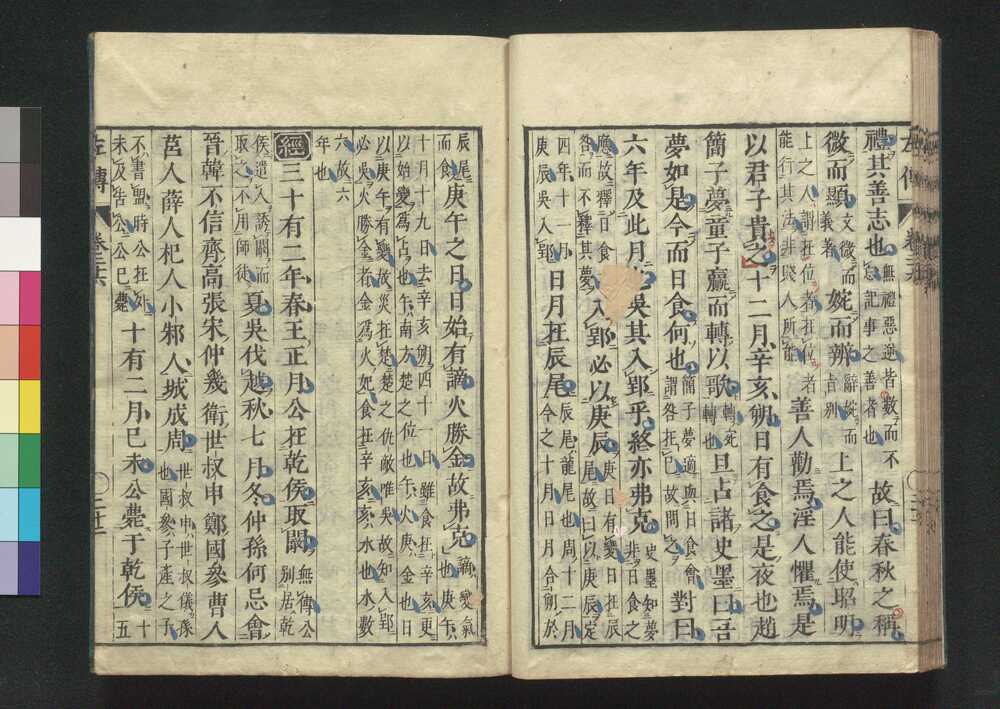 禮其善志也無禮惡逆皆數而不忘記事之善者也故曰春秋之稱
微而顯文微而義著婉而辨辭婉而旨別上之人能使昭明
上之人謂在位者在位者能行其法非賤人所能善人勸焉淫人懼焉是
以君子貴之十二月辛亥朔日有食之是夜也趙
簡子夢童子臝而轉以歌轉婉轉也旦占諸史墨曰吾
夢如是今而日食何也簡子夢適與日食會謂咎在己故問之對曰
六年及此月吳其入郢乎終亦弗克史墨知夢非日食之
應故釋日食咎而不釋其夢入郢必以庚辰庚日有變日在辰尾故曰以庚辰定
四年十一月庚辰吳入郢日月在辰尾辰尾龍尾也周十二月今之十月日月合朔於
辰尾而食庚午之日日始有謫火勝金故弗克謫變氣也庚午
十月十九日去辛亥朔四十一日雖食在辛亥更以始變爲占也午南方楚之位也午火庚金也日
以庚午有變故災在楚楚之仇敵唯吳故知入郢必吳火勝金者金爲火妃食在辛亥亥水也水數
六故六年也
經三十有二年春王正月公在乾侯取闞無傳公別居乾
侯遣人誘闞而取之不用師徒夏吳伐越秋七月冬仲孫何忌會
晉韓不信齊高張宋仲幾衛世叔申鄭國參曹人
莒人薛人杞人小邾人城成周世叔申世叔儀孫也國參子產之子
不書盟時公在外未及告公公已薨十有二月己未公薨于乾侯十五
左傳 卷二十六